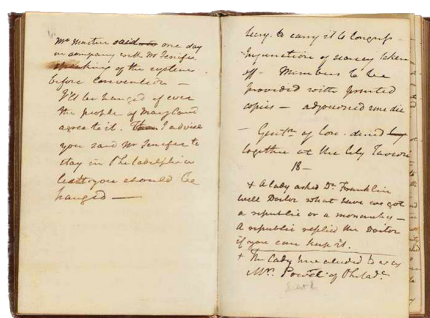 Mr Martin said one day
in company with Mr Jenifer
speaking of the system
before convention —
I'll be hanged if ever
the people of Maryland
agree to it. I advise
you said Mr Jenifer to
stay in Philadelphia
lest you should be
hanged —
Secy. to carry it to Congress —
Injunction of secrecy taken
off — Members to be
provided with printed
copies — adjourned sine die
— Gentn. of Con. dined
together at the City Tavern
18 —
+ A lady asked Dr. Franklin
well Doctor what have we got
a republic or a monarchy —
A republic replied the Doctor
if you can keep it.
+ The Lady here alluded to was
Mrs. Powel of Philada.